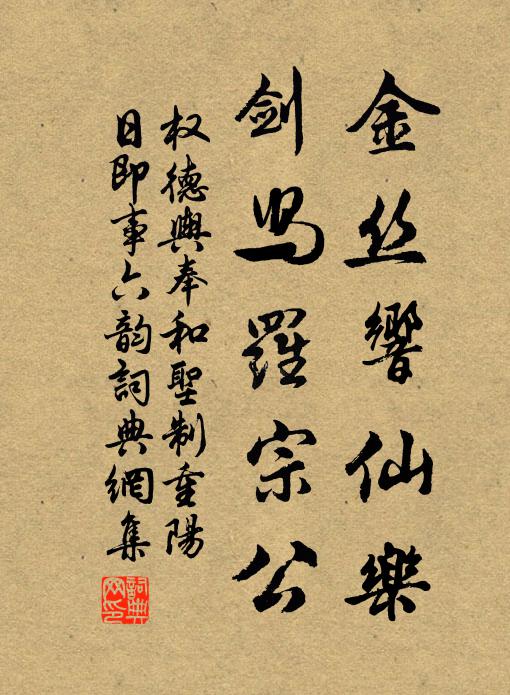 金丝響仙樂
剑舄羅宗公
权德輿奉和聖制重陽
日即事六韵詞典網集
詞典网印